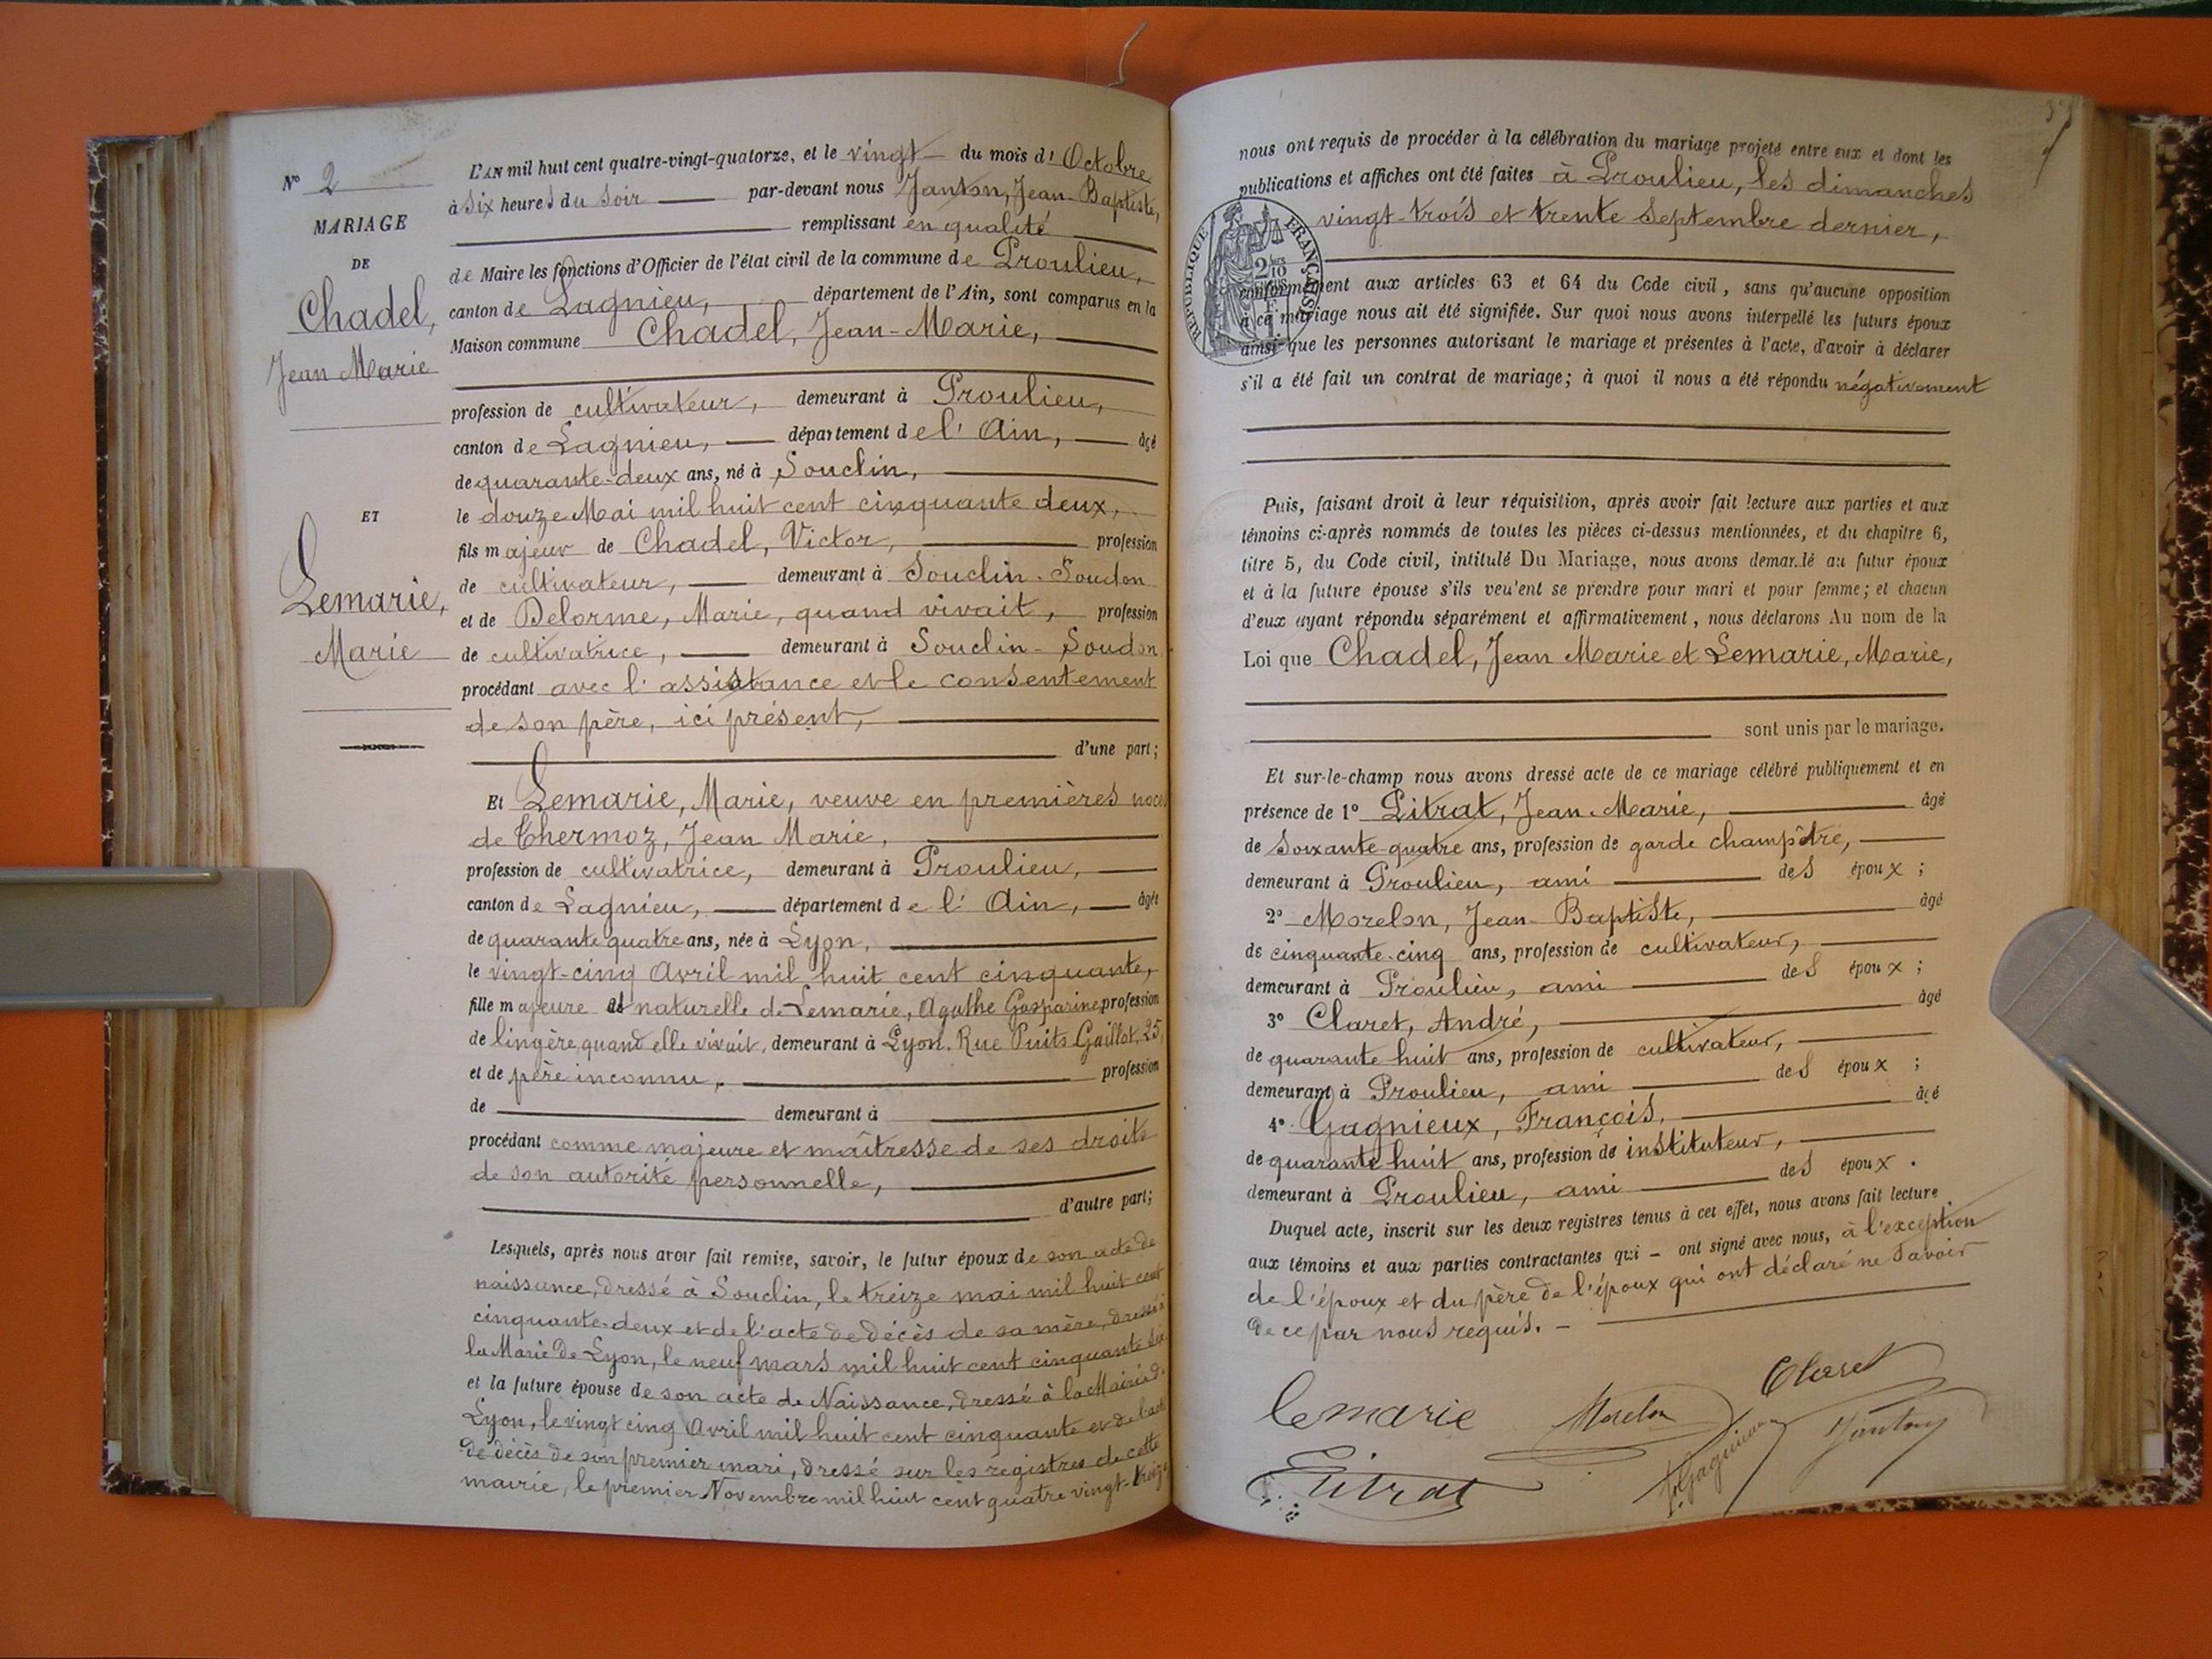 N° 2
MARIAGE
DE
Chadel,
Jean Marie
ET
Lemarie,
Marie
L'AN mil huit cent quatre-vingt-quatorze, et le vingt du mois d' Octobre
à six heures du soir par-devant nous Janton, Jean-Baptiste,
remplissant en qualité
de Maire les fonctions d'Officier de l'état civil de la commune de Proulieu,
canton de Lagnieu, département de l'Ain, sont comparus en la
Maison commune Chadel, Jean-Marie,
profession de cultivateur, demeurant à Proulieu,
canton de Lagnieu, département de l'Ain, âgé
de quarante-deux ans, né à Souclin,
le douze Mai mil huit cent cinquante deux,
fils majeur de Chadel, Victor, profession
de cultivateur, demeurant à Souclin-Soudon
et de Delorme, Marie, quand vivait, profession
de cultivatrice, demeurant à Souclin-Soudon
procédant avec l'assistance et le consentement
de son père, ici présent,
d'une part;
Et Lemarie, Marie, veuve en premières noces
de Thermoz, Jean Marie,
profession de cultivatrice, demeurant à Proulieu,
canton de Lagnieu, département de l'Ain, âgée
de quarante quatre ans, née à Lyon,
le vingt-cinq Avril mil huit cent cinquante,
fille majeure et naturelle de Lemarie, Agathe Gasparine profession
de lingère, quand elle vivait, demeurant à Lyon. Rue Puits Gaillot, 25,
et de père inconnu, profession
de demeurant à
procédant comme majeure et maîtresse de ses droits
de son autorité personnelle,
d'autre part;
Lesquels, après nous avoir fait remise, savoir, le futur époux de son acte de
naissance, dressé à Souclin, le treize mai mil huit cent
cinquante-deux et de l'acte de décès de sa mère, dressé à
la Mairie de Lyon, le neuf mars mil huit cent cinquante six
et la future épouse de son acte de Naissance, dressé à la Mairie de
Lyon, le vingt cinq Avril mil huit cent cinquante et de l'acte
de décès de son premier mari, dressé sur les registres de cette
mairie, le premier Novembre mil huit cent quatre vingt-treize
nous ont requis de procéder à la célébration du mariage projeté entre eux et dont les
publications et affiches ont été faites à Proulieu, les dimanches
vingt-trois et trente Septembre dernier,
RÉPUBLIQUE FRANÇAISE
conformément aux articles 63 et 64 du Code civil, sans qu'aucune opposition
à ce mariage nous ait été signifiée. Sur quoi nous avons interpellé les futurs époux
ainsi que les personnes autorisant le mariage et présentes à l'acte, d'avoir à déclarer
s'il a été fait un contrat de mariage; à quoi il nous a été répondu négativement
Puis, faisant droit à leur réquisition, après avoir fait lecture aux parties et aux
témoins ci-après nommés de toutes les pièces ci-dessus mentionnées, et du chapitre 6,
titre 5, du Code civil, intitulé Du Mariage, nous avons demandé au futur époux
et à la future épouse s'ils veulent se prendre pour mari et pour femme; et chacun
d'eux ayant répondu séparément et affirmativement, nous déclarons Au nom de la
Loi que Chadel, Jean Marie et Lemarie, Marie,
sont unis par le mariage.
Et sur-le-champ nous avons dressé acte de ce mariage célébré publiquement et en
présence de 1° Pitrat, Jean-Marie, âgé
de soixante-quatre ans, profession de garde champêtre,
demeurant à Proulieu, ami des époux;
2° Morelon, Jean-Baptiste, âgé
de cinquante-cinq ans, profession de cultivateur,
demeurant à Proulieu, ami des époux;
3° Claret, André, âgé
de quarante huit ans, profession de cultivateur,
demeurant à Proulieu, ami des époux;
4° Gagnieux, François, âgé
de quarante huit ans, profession de instituteur,
demeurant à Proulieu, ami des époux.
Duquel acte, inscrit sur les deux registres tenus à cet effet, nous avons fait lecture
aux témoins et aux parties contractantes qui - ont signé avec nous, à l'exception
de l'époux et du père de l'époux qui ont déclaré ne savoir
de ce par nous requis. -
lemarie Morelon Claret
Pitrat Gagnieux Janton